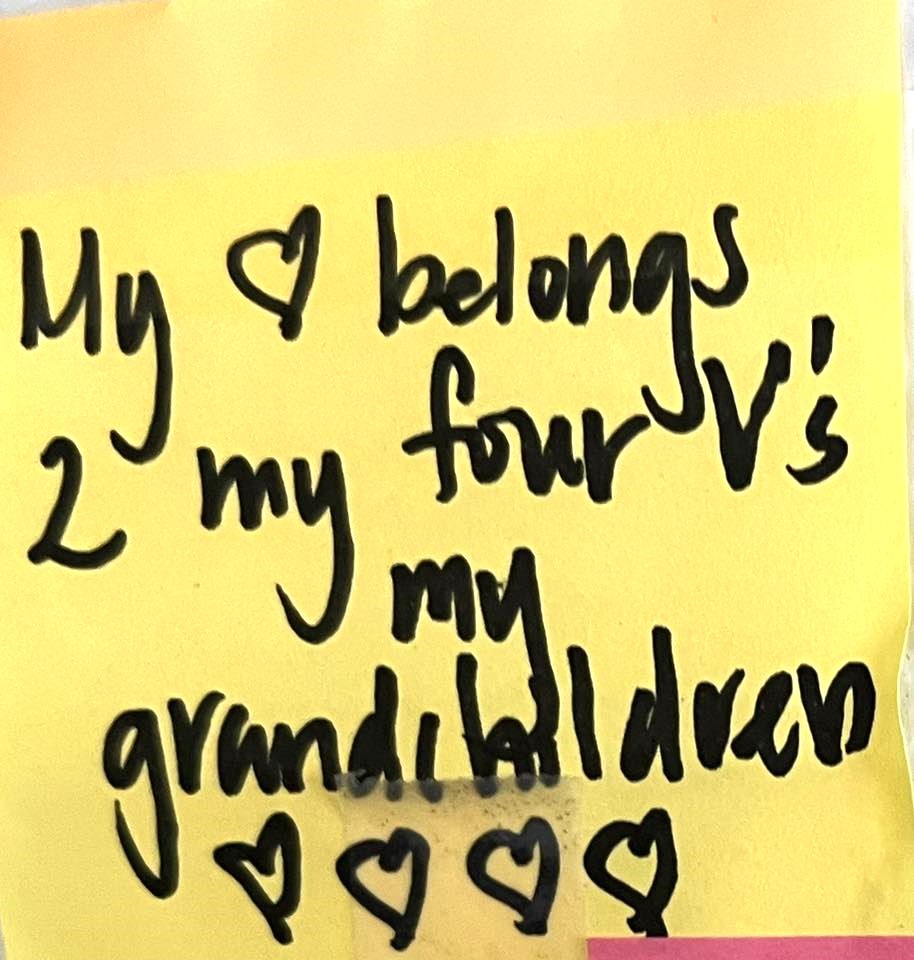 My ♡ belongs
2 my four V's
my
grandchildren
♡ ♡ ♡ ♡